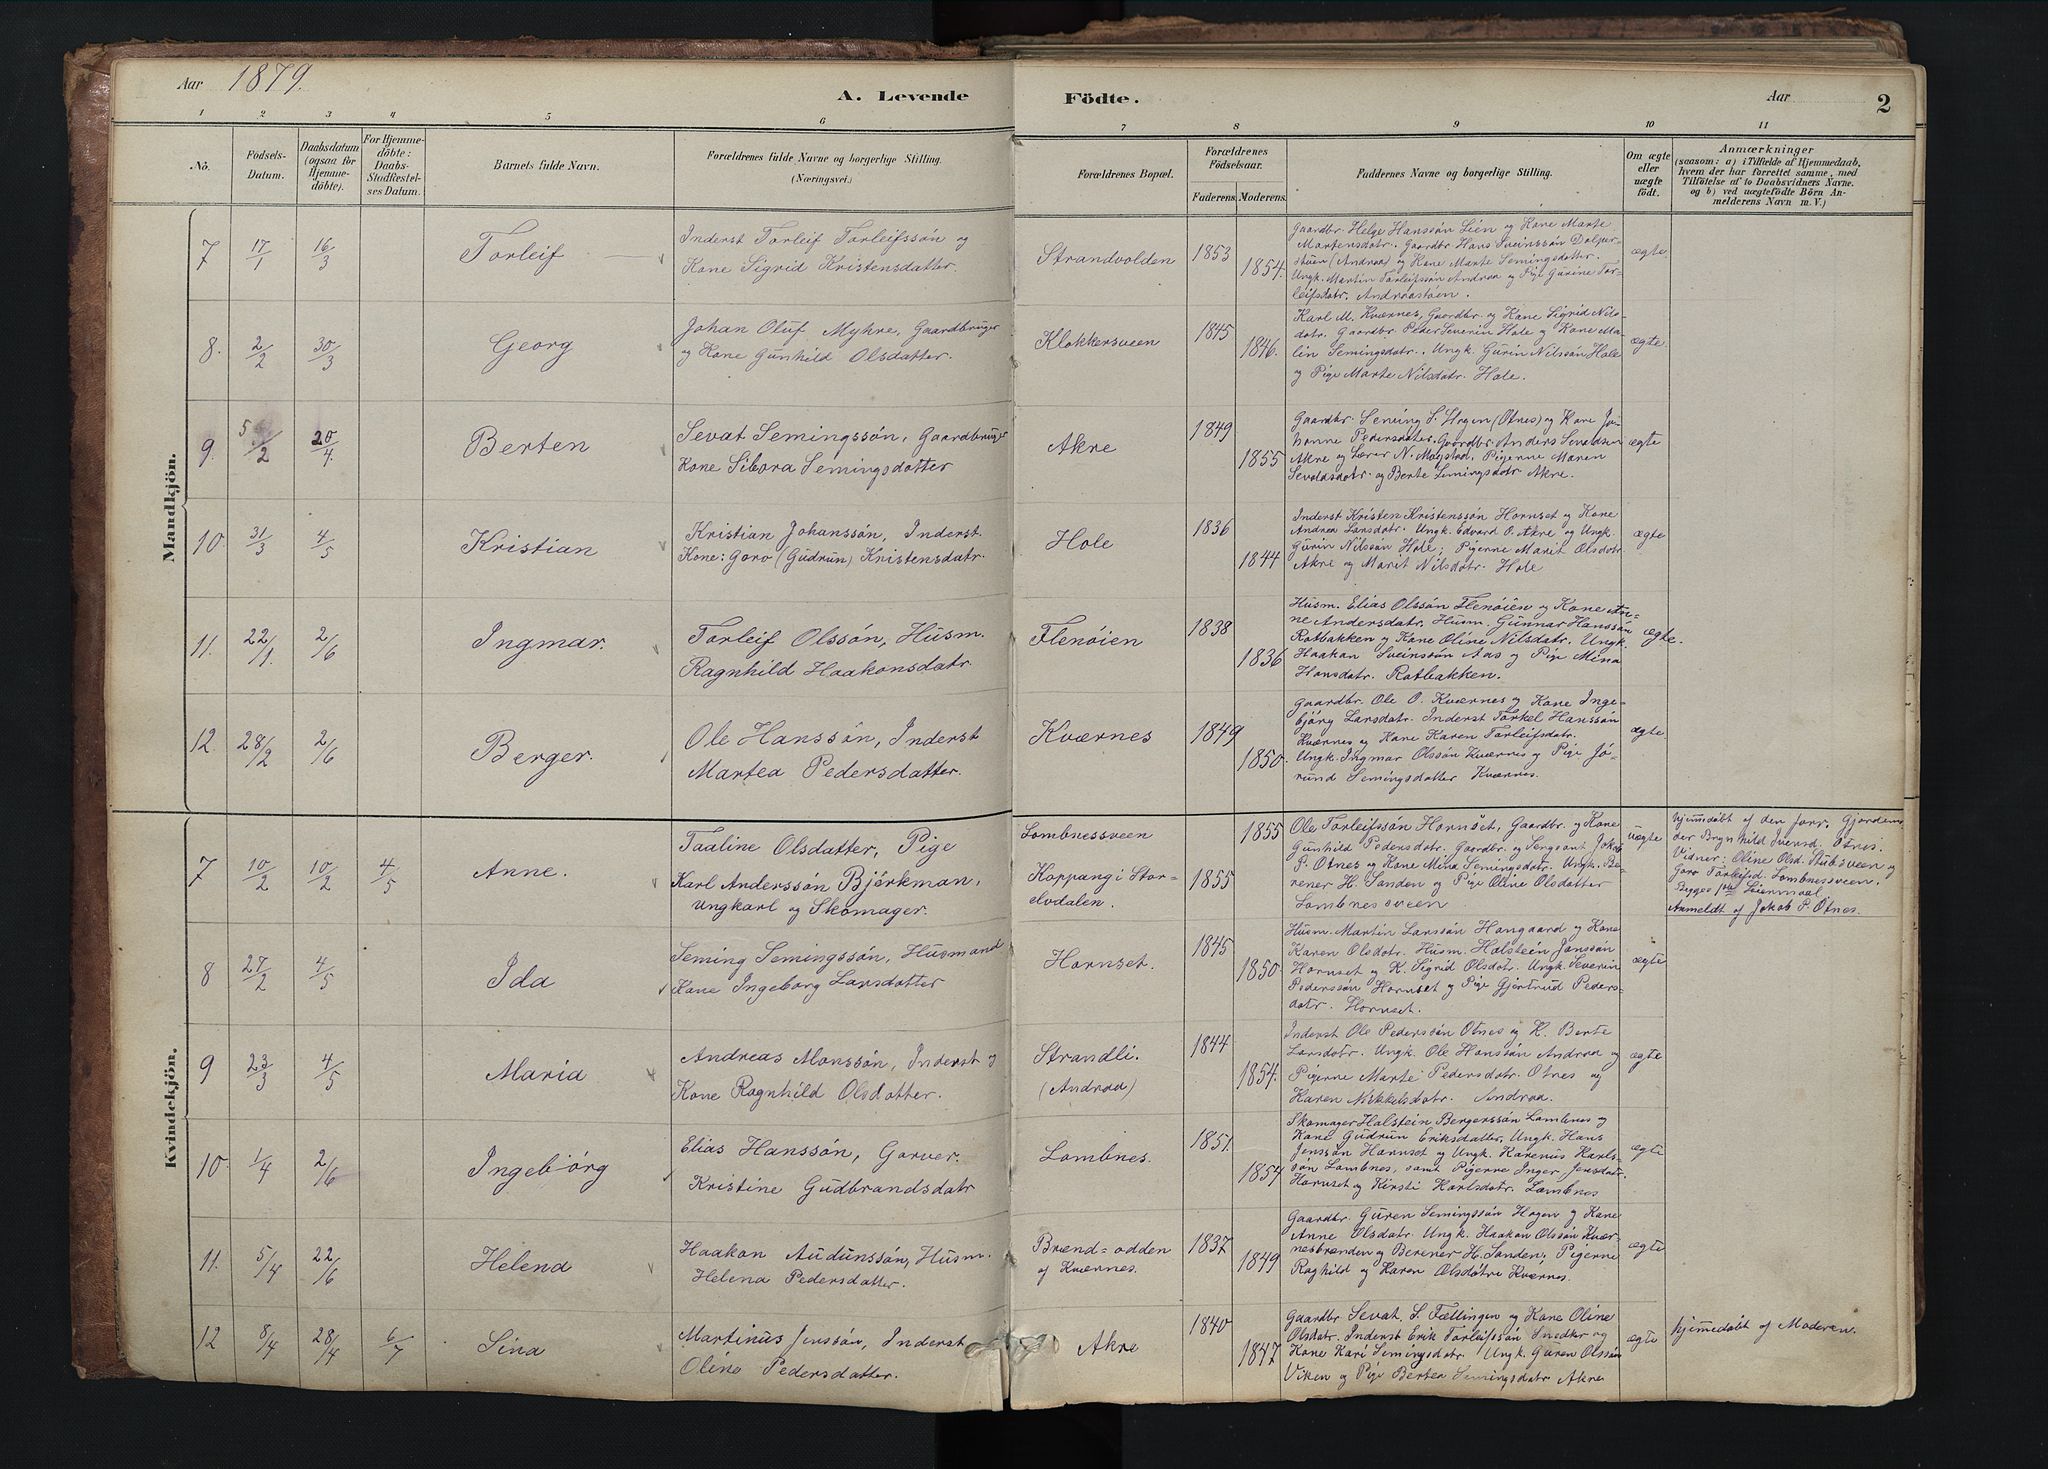 Aar 1879.
A. Levende Födte.
Aar
2
1 2 3 4 5 6 7 8 9 10 11
No.
Födsels-Datum.
Daabsdatum (ogsaa for Hjemmedöbte).
For Hjemmedöbte: Daabs-Stadfæstelses Datum.
Barnets fulde Navn.
Forældrenes fulde Navne og borgerlige Stilling.
(Næringsvei.)
Forældrenes Bopæl.
Forældrenes Födselsaar.
Faderens. Moderens.
Faddernes Navne og borgerlige Stilling.
Om ægte eller uægte födt.
Anmærkninger
(saasom: a) i Tilfælde af Hjemmedaab,
hvem der har forrettet samme, med
Tilföielse af to Daabsvidners Navne.
og b) ved uægtefödte Börn An-
melderens Navn m. V.)
Mandkjön.
7 17/1 16/3 Torleif
Inderst Torleif Torleifssön og
Kone Sigrid Kristensdatter.
Strandvolden 1853 1854.
Gaardbr. Helge Hanssön Lien og Kone Marte
Martensdatr. Gaardbr Hans Sveinssön Dalpur-
stuen (Andraa) og Kone Marte Semingsdatter.
Ungk. Martin Torleifssön Andraa og Pige Gurine Tor-
leifsdatr. Andraastöen.
ægte
8. 2/2 30/3 Georg
Johan Oluf Myhre, Gaardbruger
og Kone Gunhild Olsdatter.
Klokkersveen 1845 1846.
Karl M. Kværnes, Gaardbr. og Kone Sigrid Nils-
datr. Gaardbr. Peder Severin Hole og Kone Ma-
lin Semingsdatr. Ungk. Gurin Nilssön Hole
og Pige Marte Nilsdatr. Hole.
ægte
9. 5/2 20/4. Berten
Sevat Semingssön, Gaardbruger
Kone Sibora Semingsdatter
Akre 1849 1855
Gaardbr. Seming S. Hogen (Otnes) og Kone Jo-
hanne Pedersdatter. Gaardbr. Anders Sevaldsen
Akre og Lærer N. Magstad. Pigerne Maren
Sevaldsdatr. og Berte Semingsdatr Akre.
ægte
10. 31/3 4/5 Kristian
Kristian Johanssön, Inderst.
Kone: Goro (Gudrun) Kristensdatr.
Hole 1836 1844
Inderst Kristen Kristenssön Hornset og Kone
Andrea Larsdatr. Ungk. Edvard O. Akre og Ungk.
Gurin Nilssön Hole; Pigerne Marit Olsdatr.
Akre og Marit Nilsdatr. Hole
ægte
11. 22/1. 2/6 Ingmar.
Torleif Olssön, Husm.
Ragnhild Haakonsdatr.
Flenöien 1838 1836
Husm. Elias Olssön Flenöien og Kone An-
ne Andersdatr. Husm. Gunnar Hanssön
Rotbakken og Kone Oline Nilsdatr. Ungk.
Haakon Sveinssön Aas og Pige Mina
Hansdatr. Rotbakken.
ægte.
12. 28/2 2/6 Berger.
Ole Hanssön, Inderst
Martea Pedersdatter.
Kværnes 1849 1850.
Gaardbr. Ole O. Kværnes og Kone Inge-
björg Larsdatr. Inderst Torkel Hanssön
Kværnes og Kone Karen Torleifsdatr.
Ungk. Ingmar Olssön Kværnes og Pige Jö-
rund Semingsdatter Kværnes.
ægte
Kvindekjön.
7 10/2 10/2 4/5 Anne.
Taaline Olsdatter, Pige
Karl Anderssön Bjerkman,
Ungkarl og Skomager.
Lombnessveen
Koppang i Stor-
elvdalen.
1855 1855
Ole Torleifssön Hornset, Gaardbr. og Kone
Gunhild Pedersdatr. Gaardbr. og Sergeant Jakob
P. Otnes og Kone Mina Semingsdatr. Ungk. Be-
rener H. Sanden og Pige Oline Olsdatter
Lombnessveen
uægte
hjemmedöbt af den Gjordem.
der Brynhild Iversd. Otnes.
Vidner: Oline Olsd. Stubsveen og
Goro Torleifsd. Lombnessveen.
Begges Leiermaal
Anmeldt af Jakob P. Otnes.
8 27/2 4/5 Ida
Seming Semingssön, Husmand
Kone Ingeborg Larsdatter
Hornset. 1845 1850.
Husm. Martin Larssön Hangaard og Kone
Karen Olsdatr. Husm. Halstein Jonssön
Hornset og K. Sigrid Olsdatr. Ungk. Severin
Pederssön Hornset og Pige Gjertrud Peders-
datr. Hornset.
ægte
9 23/3 4/5 Maria
Andreas Monssön, Inderst og
Kone Ragnhild Olsdatter.
Strandli.
(Andraa)
1844 1854.
Inderst Ole Pederssön Otnes og K. Berte
Larsdatr. Ungk. Ole Hanssön Andraa og
Pigerne Marte Pedersdatr. Otnes og
Karen Nikkelsdatr. Andraa.
ægte
10. 1/4 2/6 Ingebjörg
Elias Hanssön, Garver.
Kristine Gudbrandsdatr
Lombnes. 1851. 1854
Skomager Halstein Bergerssön Lombnes og
Kone Gudrun Eriksdatter, Ungk. Hans
Jenssön Hornset og Ungk. Karenus Karls-
sön Lombnes, samt Pigerne Inger Jensdatr.
Hornset og Kirsti Karlsdatr. Lombnes
ægte
11. 5/4 22/6 Helena
Haakon Audunssön, Husm.
Helena Pedersdatter.
Brænd-odden
af Kværnes.
1837 1849
Gaardbr. Guren Semingssön Hogen og Kone
Anne Olsdatr. Ungk. Haakon Olssön Kvær-
nesbrænden og Berener H. Sanden; Pigerne
Raghild og Karen Olsdötre Kværnes.
ægte
12 8/4 28/4 6/7 Sina
Martinus Jenssön, Inderst
Oline Pedersdatter.
Akre 1840 1847
Gaardbr Sevat S. Fættingen og Kone Oline
Olsdatr. Inderst Erik Torleifssön Snedker og
Kone Kari Semingsdatr. Ungk. Guren Olssön
Viken og Pige Bertea Semingsdatr. Akre
ægte
hjemmedöbt af Moderen.